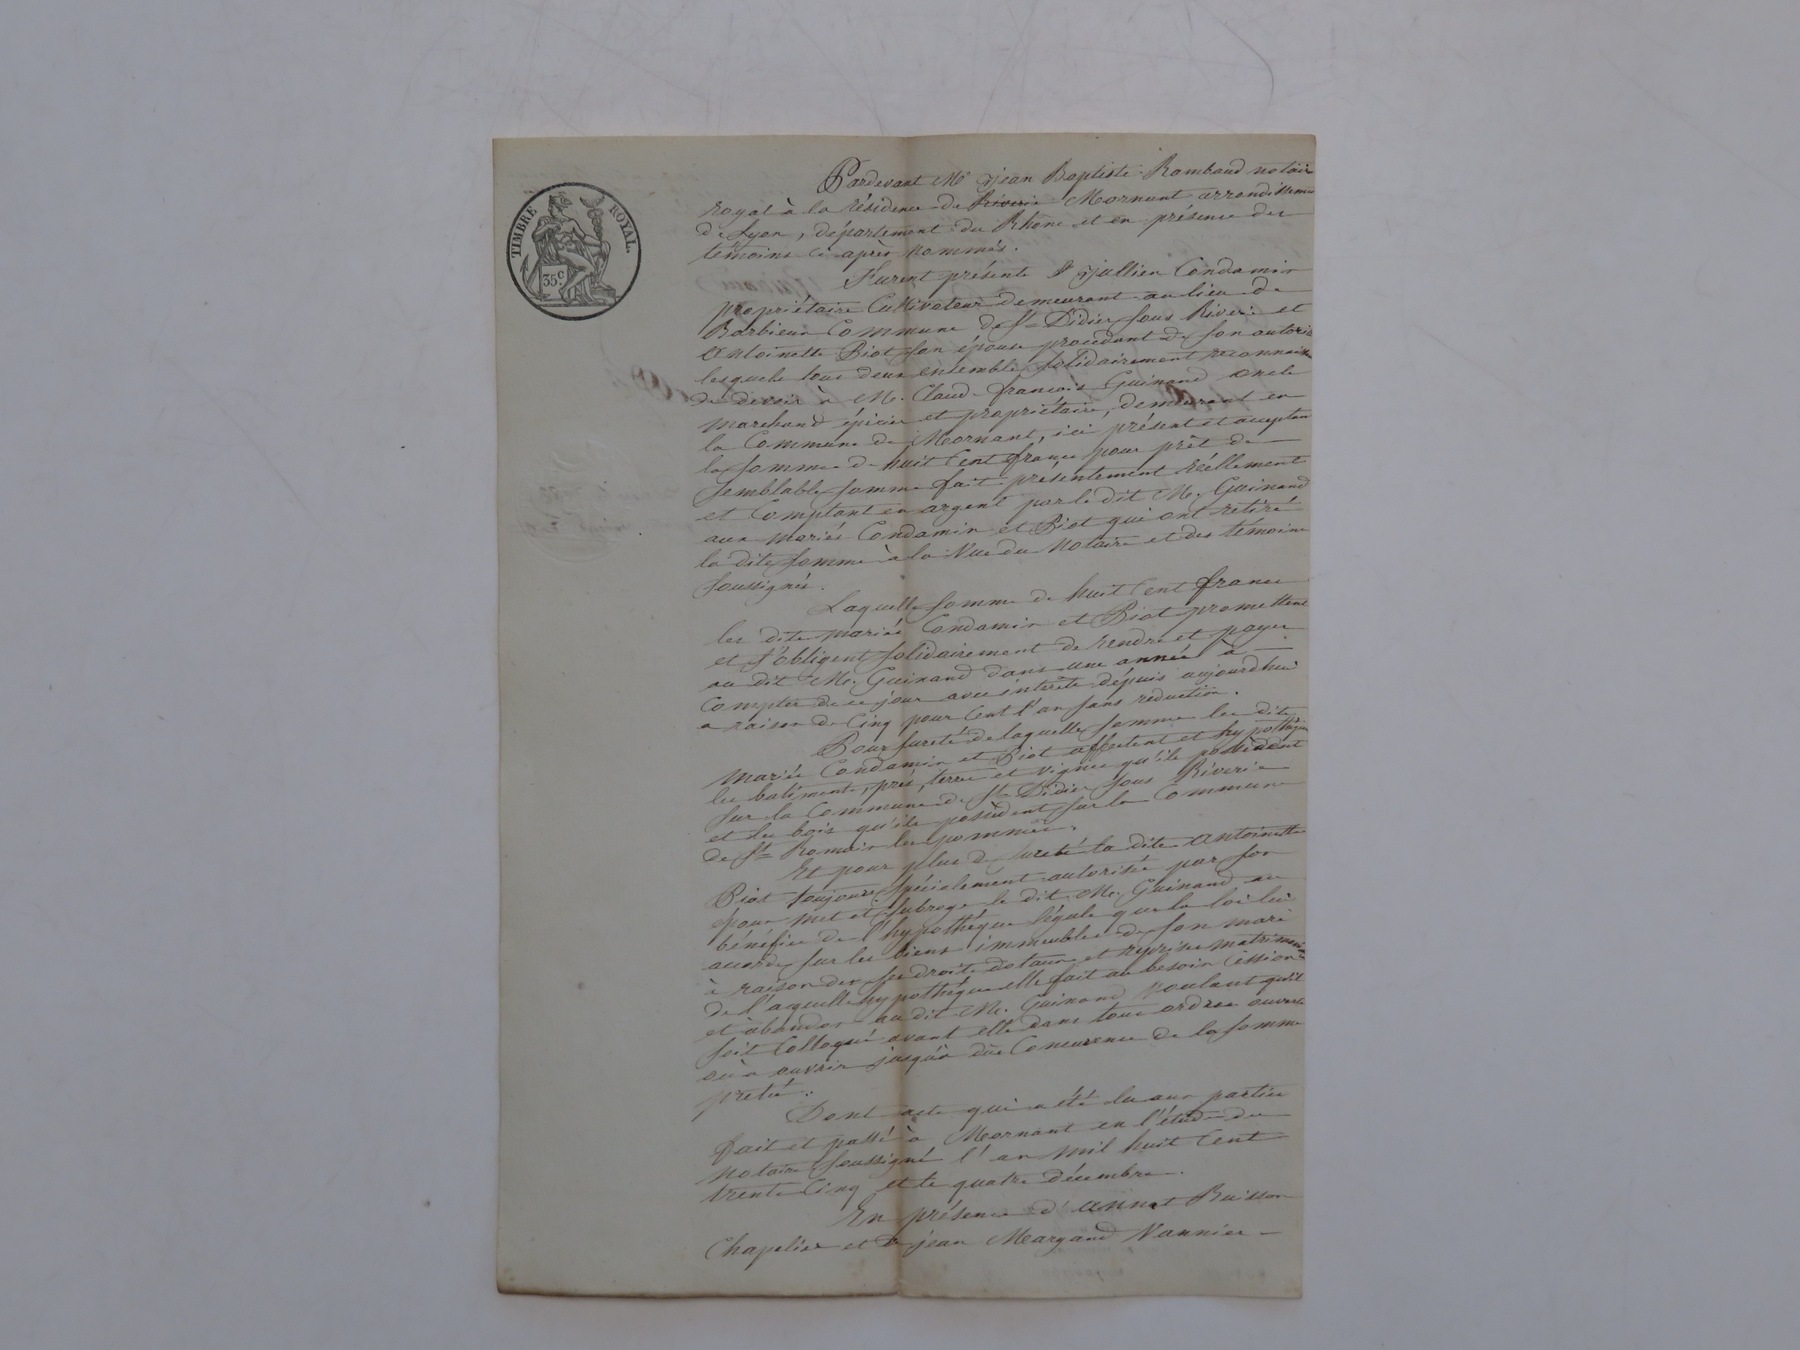 TIMBRE ROYAL
35 C.
Pardevant Me jean Baptiste Rambaud notaire
royal à la résidence de Riverie Mornant arrondisseme
de Lyon, département du Rhône et en présence des
témoins ci après nommés.
Furent présents St jullien Condamin
propriétaire Cultivateur demeurant au lieu de
Barbieux Commune de St Didier sous Riverie et
antoinette Piot son épouse procédant de son autorité
lesquels tous deux ensemble solidairement reconnaisse
de devoir à M. Claude françois Guinand oncle
marchand épicier et propriétaire, demeurant en
la Commune de Mornant, ici présent et acceptan
la somme de huit Cent francs pour prêt de
semblable somme fait présentement réellement
et Comptant en argent par le dit M. Guinand
aux mariés Condamin et Piot qui ont retiré
la dite somme à la Vue du Notaire et des témoins
soussignés.
Laquelle somme de huit Cent francs
les dits mariés Condamin et Piot promettent
et s'obligent solidairement de rendre et payer
au dit M. Guinand dans une année à
Compter de ce jour avec intérêts dépuis aujourd'hui
a raison de Cinq pour Cent l'an sans réduction.
Pour sureté de laquelle somme les dits
mariés Condamin et Piot affectent et hypothèqu
les batiments, prés, terres et vignes qu'ils possèdent
sur la Commune de St Didier sous Riverie
et les bois qu'ils posèdent sur la Commune
de St Romain les pommés.
Et pour plus de sureté la dite antoinette
Piot toujours spécialement autorisée par son
époux met et subroge le dit M. Guinand au
bénéfice de l'hypothèque légale que la loi lui
accorde sur les biens immeubles de son mari
à raison des ses droits dotaux et reprises matrimoni
de laquelle hypothèque elle fait au besoin Cession
et abandon au dit M. Guinand voulant qu'il
soit Colloqué avant elle dans tous ordres ouverts
ou à ouvrir jusqu'à düe Concurence de la somme
pretée.
Dont acte qui a été lu aux parties
fait et passé à Mornant en l'étude du
notaire soussigné l'an mil huit Cent
trente Cinq et le quatre décembre.
En présence d'annet Buisson
Chapelier et de jean Margand Vannier